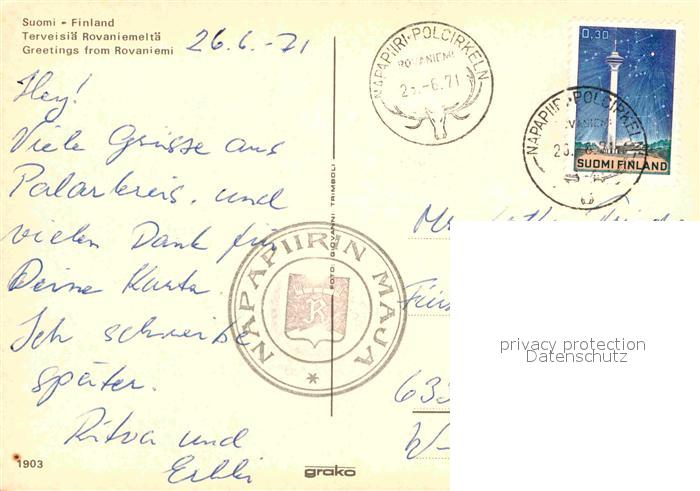 Suomi - Finland
Terveisiä Rovaniemeltä
Greetings from Rovaniemi
26.6.-71
Hey!
Viele Grüsse aus
Polarkreis, und
vielen Dank für
Deine Karte.
Ich schreibe
später.
Ritva und
Erkki
1903
grako
FOTO: GIOVANNI TRIMBOLI
NAPAPIIRIN MAJA
R
*
NAPAPIIRI-POLCIRKELN
ROVANIEMI
-6.71
0,30
SUOMI FINLAND
NAPAPIIRI-POLCIRKELN
privacy protection
Datenschutz